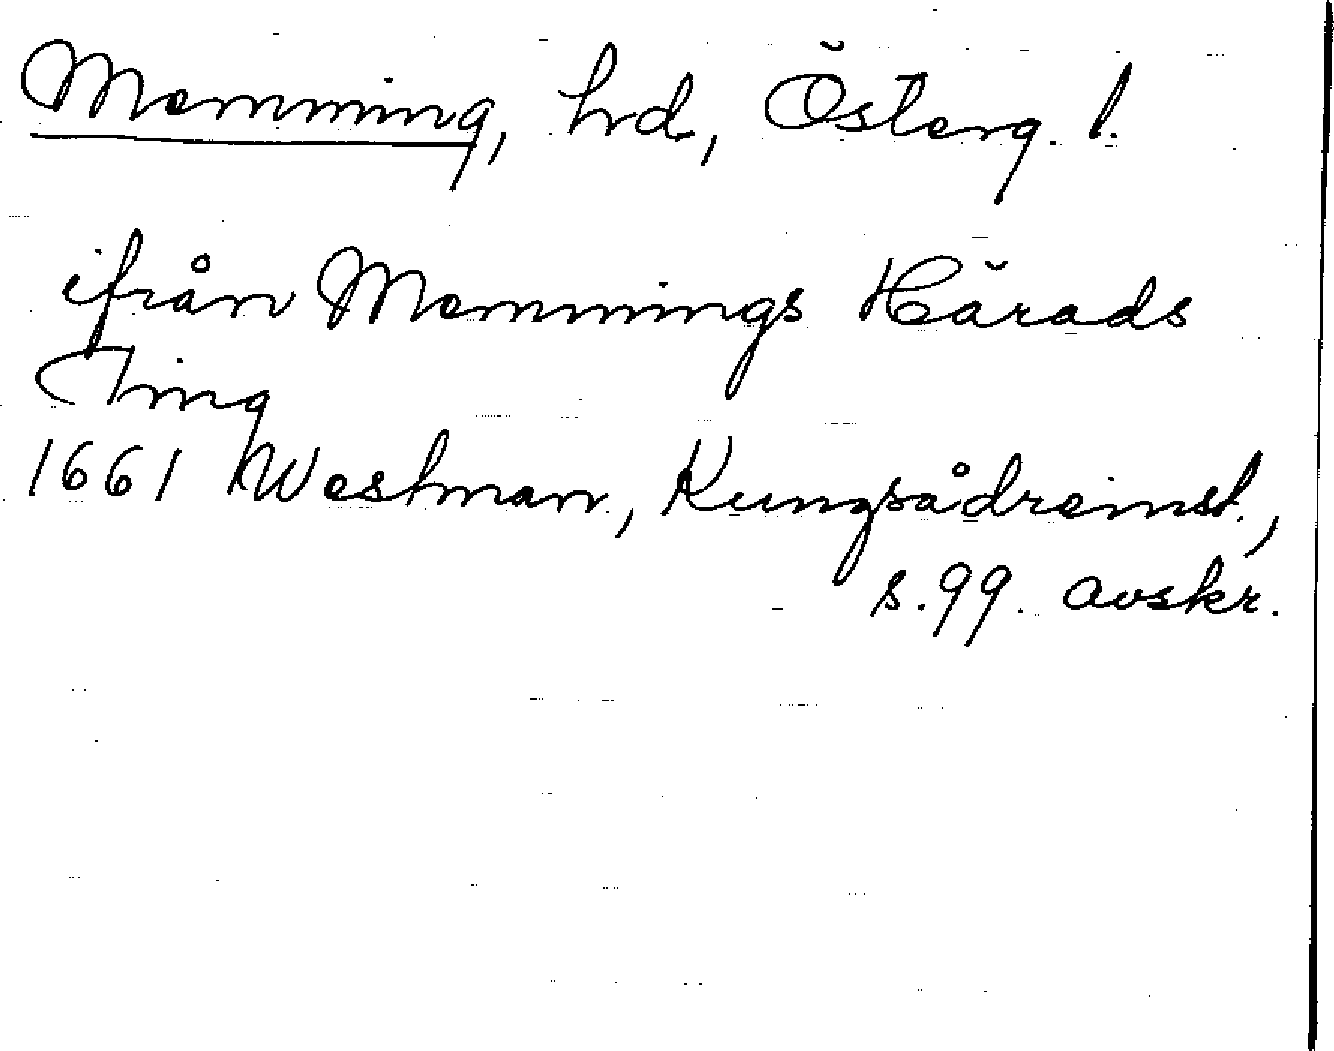 Memming, hrd, Österg. l.
ifrån Memmings Härads
Ting
1661 Westman, Kungsådreinst.,
s. 99. avskr.